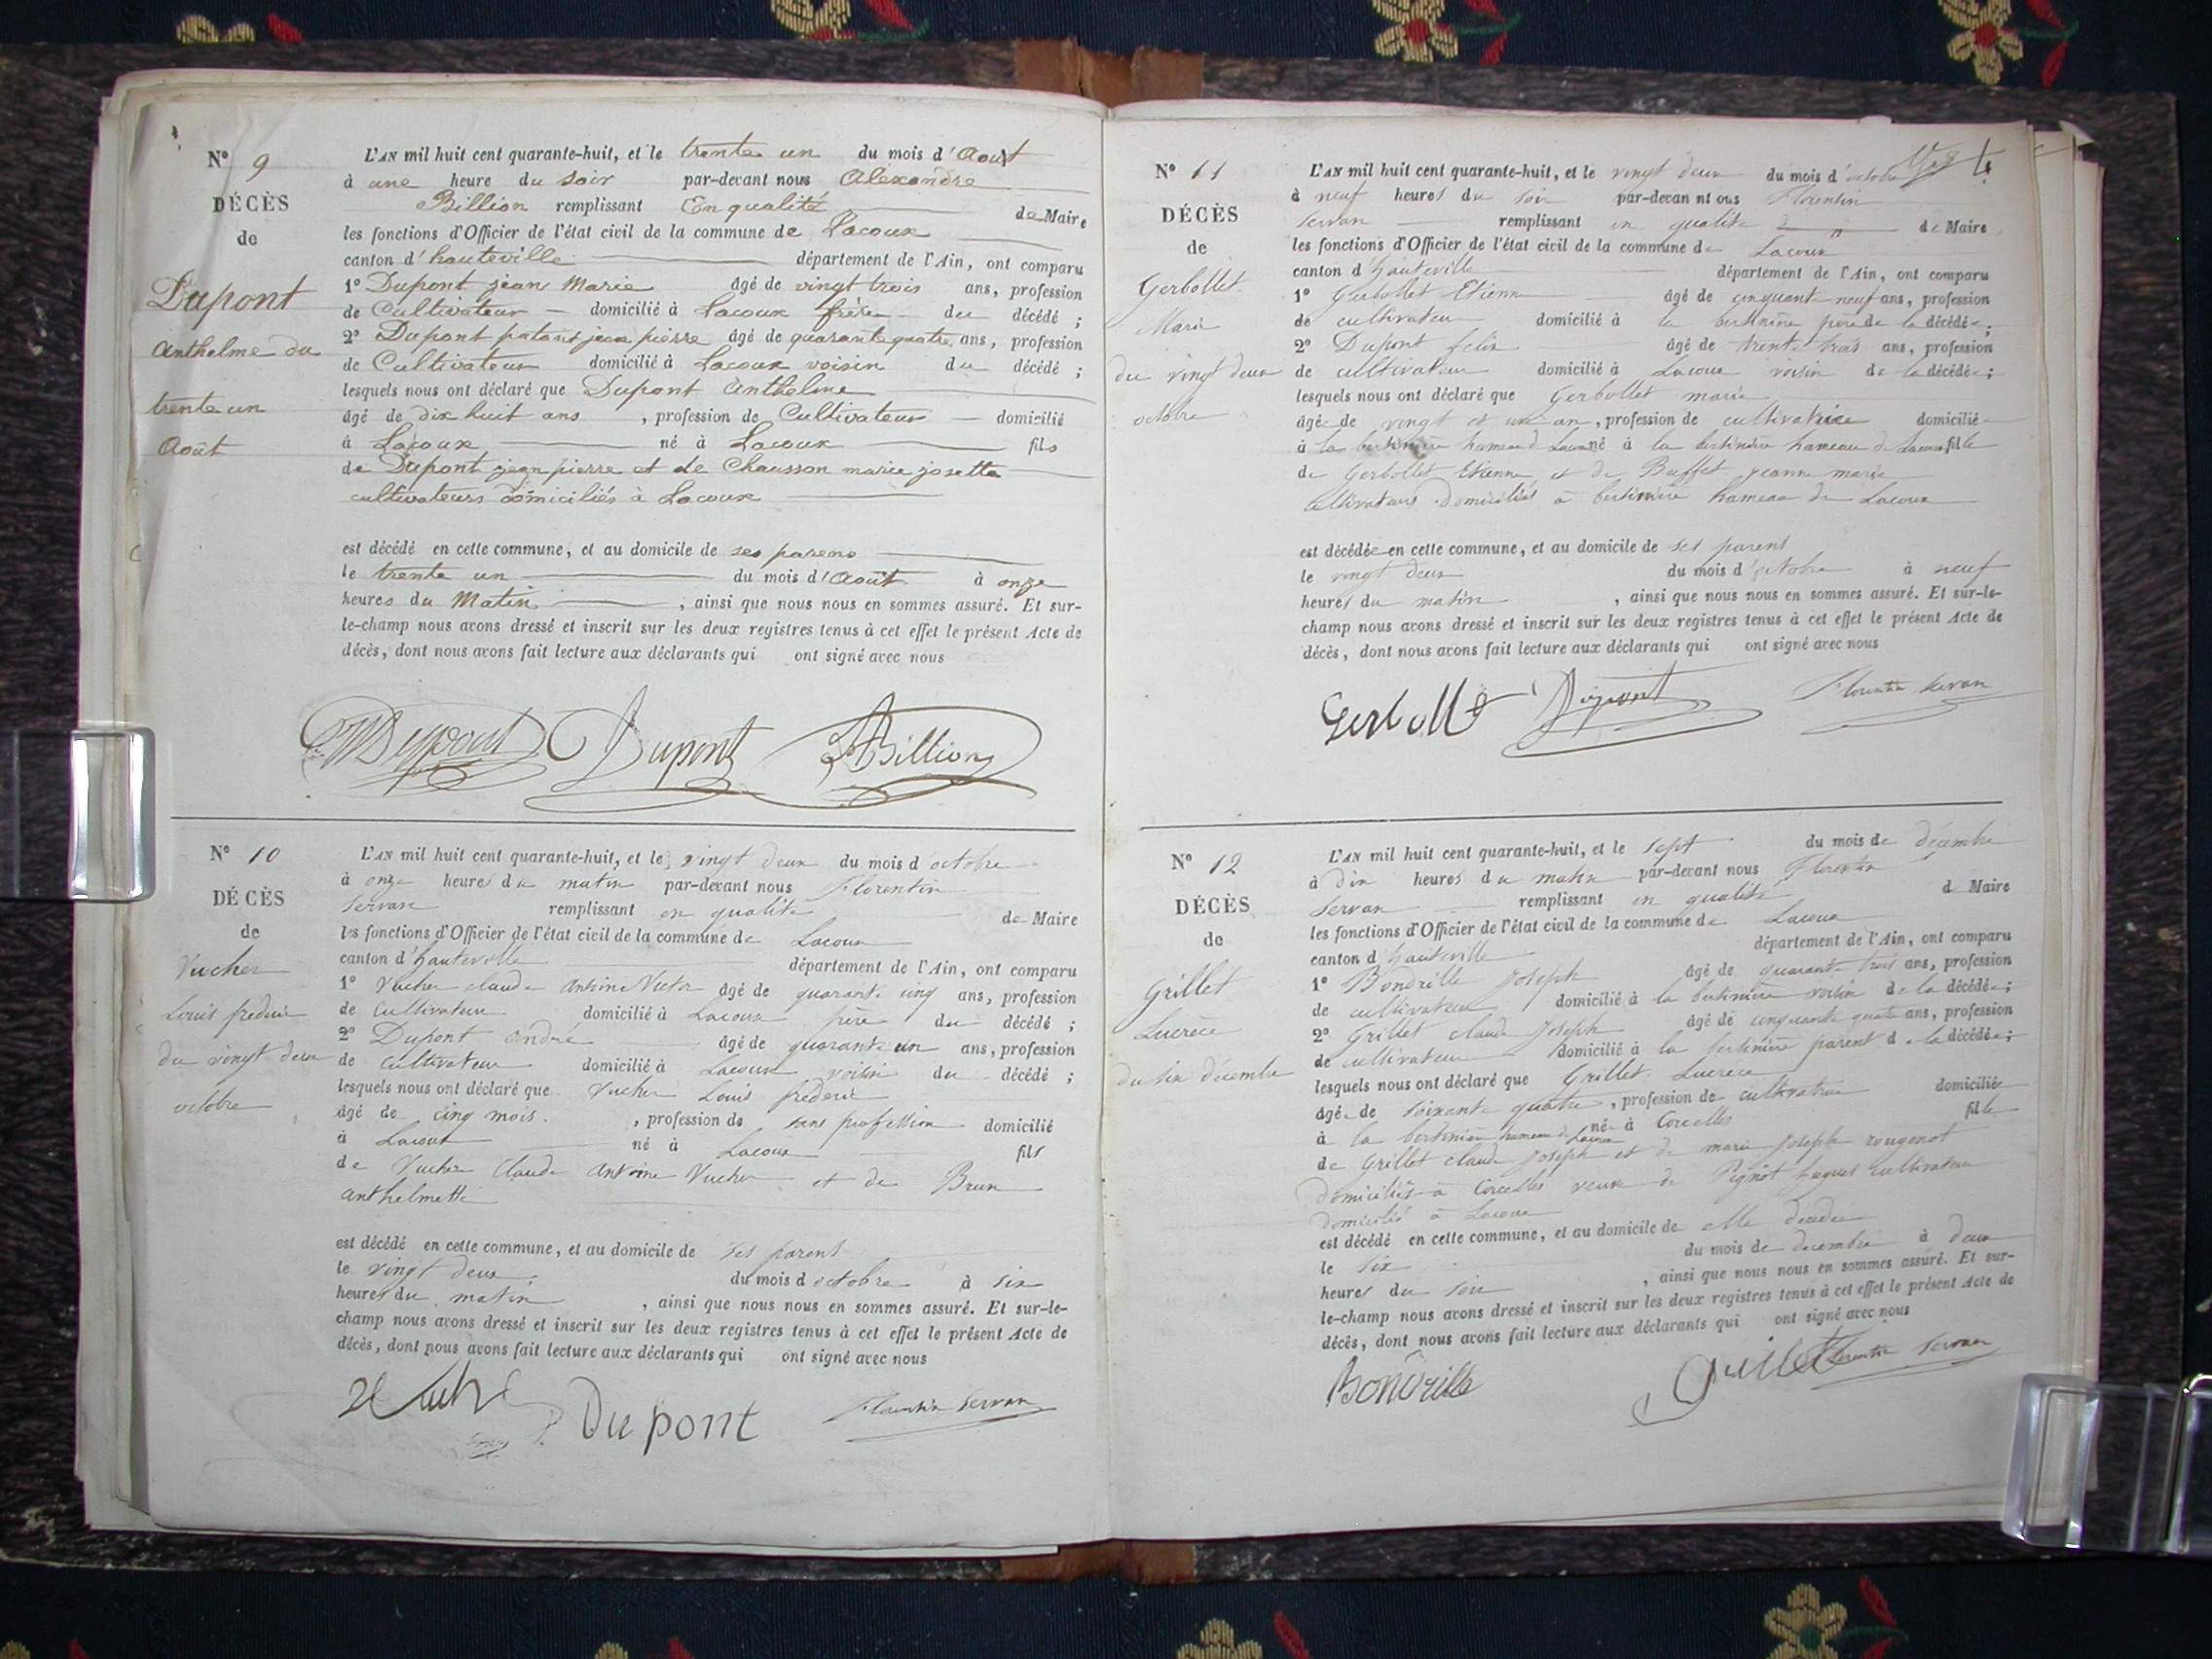 N° 9
DÉCÈS
de
Dupont
Anthelme du
trente un
Août
L'AN mil huit cent quarante-huit, et le trente un du mois d'Aout
à une heure du soir par-devant nous Alexandre
Billion remplissant En qualité de Maire
les fonctions d'Officier de l'état civil de la commune de Lacoux
canton d'hauteville département de l'Ain, ont comparu
1° Dupont jean Marie âgé de vingt trois ans, profession
de Cultivateur domicilié à Lacoux frère du décédé ;
2° Dupont jean pierre âgé de quarante quatre ans, profession
de Cultivateur domicilié à Lacoux voisin du décédé ;
lesquels nous ont déclaré que Dupont Anthelme
âgé de dix huit ans , profession de Cultivateur domicilié
à Lacoux né à Lacoux fils
de Dupont jean pierre et de Chausson marie josette
cultivateurs domiciliés à Lacoux
est décédé en cette commune, et au domicile de ses parens
le trente un du mois d'Août à onze
heures du Matin , ainsi que nous nous en sommes assuré. Et sur-
le-champ nous avons dressé et inscrit sur les deux registres tenus à cet effet le présent Acte de
décès, dont nous avons fait lecture aux déclarants qui ont signé avec nous
Dupont Dupont Billion
N° 10
DÉCÈS
de
Vucher
Louis frederic
du vingt deux
octobre
L'AN mil huit cent quarante-huit, et le vingt deux du mois d octobre
à onze heures du matin par-devant nous Florentin
Servan remplissant en qualité de Maire
les fonctions d'Officier de l'état civil de la commune de Lacoux
canton d'hauteville département de l'Ain, ont comparu
1° Vucher claude Antoine Victor âgé de quarante cinq ans, profession
de Cultivateur domicilié à Lacoux père du décédé ;
2° Dupont André âgé de quarante un ans, profession
de cultivateur domicilié à Lacoux voisin du décédé ;
lesquels nous ont déclaré que Vucher Louis frederic
âgé de cinq mois. , profession de sans profession domicilié
à Lacoux né à Lacoux fils
de Vucher Claude Antoine Vucher et de Brun
anthelmette
est décédé en cette commune, et au domicile de ses parent
le vingt deux du mois d octobre à six
heures du matin , ainsi que nous nous en sommes assuré. Et sur-le-
champ nous avons dressé et inscrit sur les deux registres tenus à cet effet le présent Acte de
décès, dont nous avons fait lecture aux déclarants qui ont signé avec nous
Dupont Florentin Servan
N° 11
DÉCÈS
de
Gerbollet
Marie
du vingt deux
octobre
L'AN mil huit cent quarante-huit, et le vingt deux du mois d'octobre
à neuf heures du soir par-devan nt ous Florentin
Servan remplissant en qualité de Maire
les fonctions d'Officier de l'état civil de la commune de Lacoux
canton d'hauteville département de l'Ain, ont comparu
1° Gerbollet Etienne âgé de cinquante neuf ans, profession
de cultivateur domicilié à la bertinière père de la décédée ;
2° Dupont felix âgé de trente trois ans, profession
de cultivateur domicilié à Lacoux voisin de la décédée ;
lesquels nous ont déclaré que Gerbollet marie
âgée de vingt et un an , profession de cultivatrice domiciliée
à la bertinière hameau de Lacoux né à la bertinière hameau de Lacoux fille
de Gerbollet Etienne et de Buffet jeanne marie
Cultivateurs domiciliés à bertinière hameau de Lacoux
est décédée en cette commune, et au domicile de ses parent
le vingt deux du mois d'octobre à neuf
heures du matin , ainsi que nous nous en sommes assuré. Et sur-le-
champ nous avons dressé et inscrit sur les deux registres tenus à cet effet le présent Acte de
décès, dont nous avons fait lecture aux déclarants qui ont signé avec nous
Gerbollet Dupont Florentin Servan
N° 12
DÉCÈS
de
Grillet
Lucrèce
du six décembre
L'AN mil huit cent quarante-huit, et le sept du mois de décembre
à dix heures du matin par-devant nous Florentin
Servan remplissant en qualité d Maire
les fonctions d'Officier de l'état civil de la commune de Lacoux
canton d'hauteville département de l'Ain, ont comparu
1° Bondrille Joseph âgé de quarante trois ans, profession
de cultivateur domicilié à la bertinière voisin de la décédée ;
2° Grillet claude Joseph âgé de cinquante quatre ans, profession
de cultivateur domicilié à la bertinière parent d e la décédée ;
lesquels nous ont déclaré que Grillet Lucrèce
âgée de soixante quatre , profession de cultivatrice domiciliée
à la bertinière hameau de Lacoux née à Corcelles fille
de Grillet claude Joseph et de marie Joseph rougemot
domiciliés à Corcelles veuve de Pignot hugues cultivateur
domicilié à Lacoux
est décédé en cette commune, et au domicile de elle
le six du mois de decembre à deux
heures du soir , ainsi que nous nous en sommes assuré. Et sur-
le-champ nous avons dressé et inscrit sur les deux registres tenus à cet effet le présent Acte de
décès, dont nous avons fait lecture aux déclarants qui ont signé avec nous
Bondrille Grillet Florentin Servan